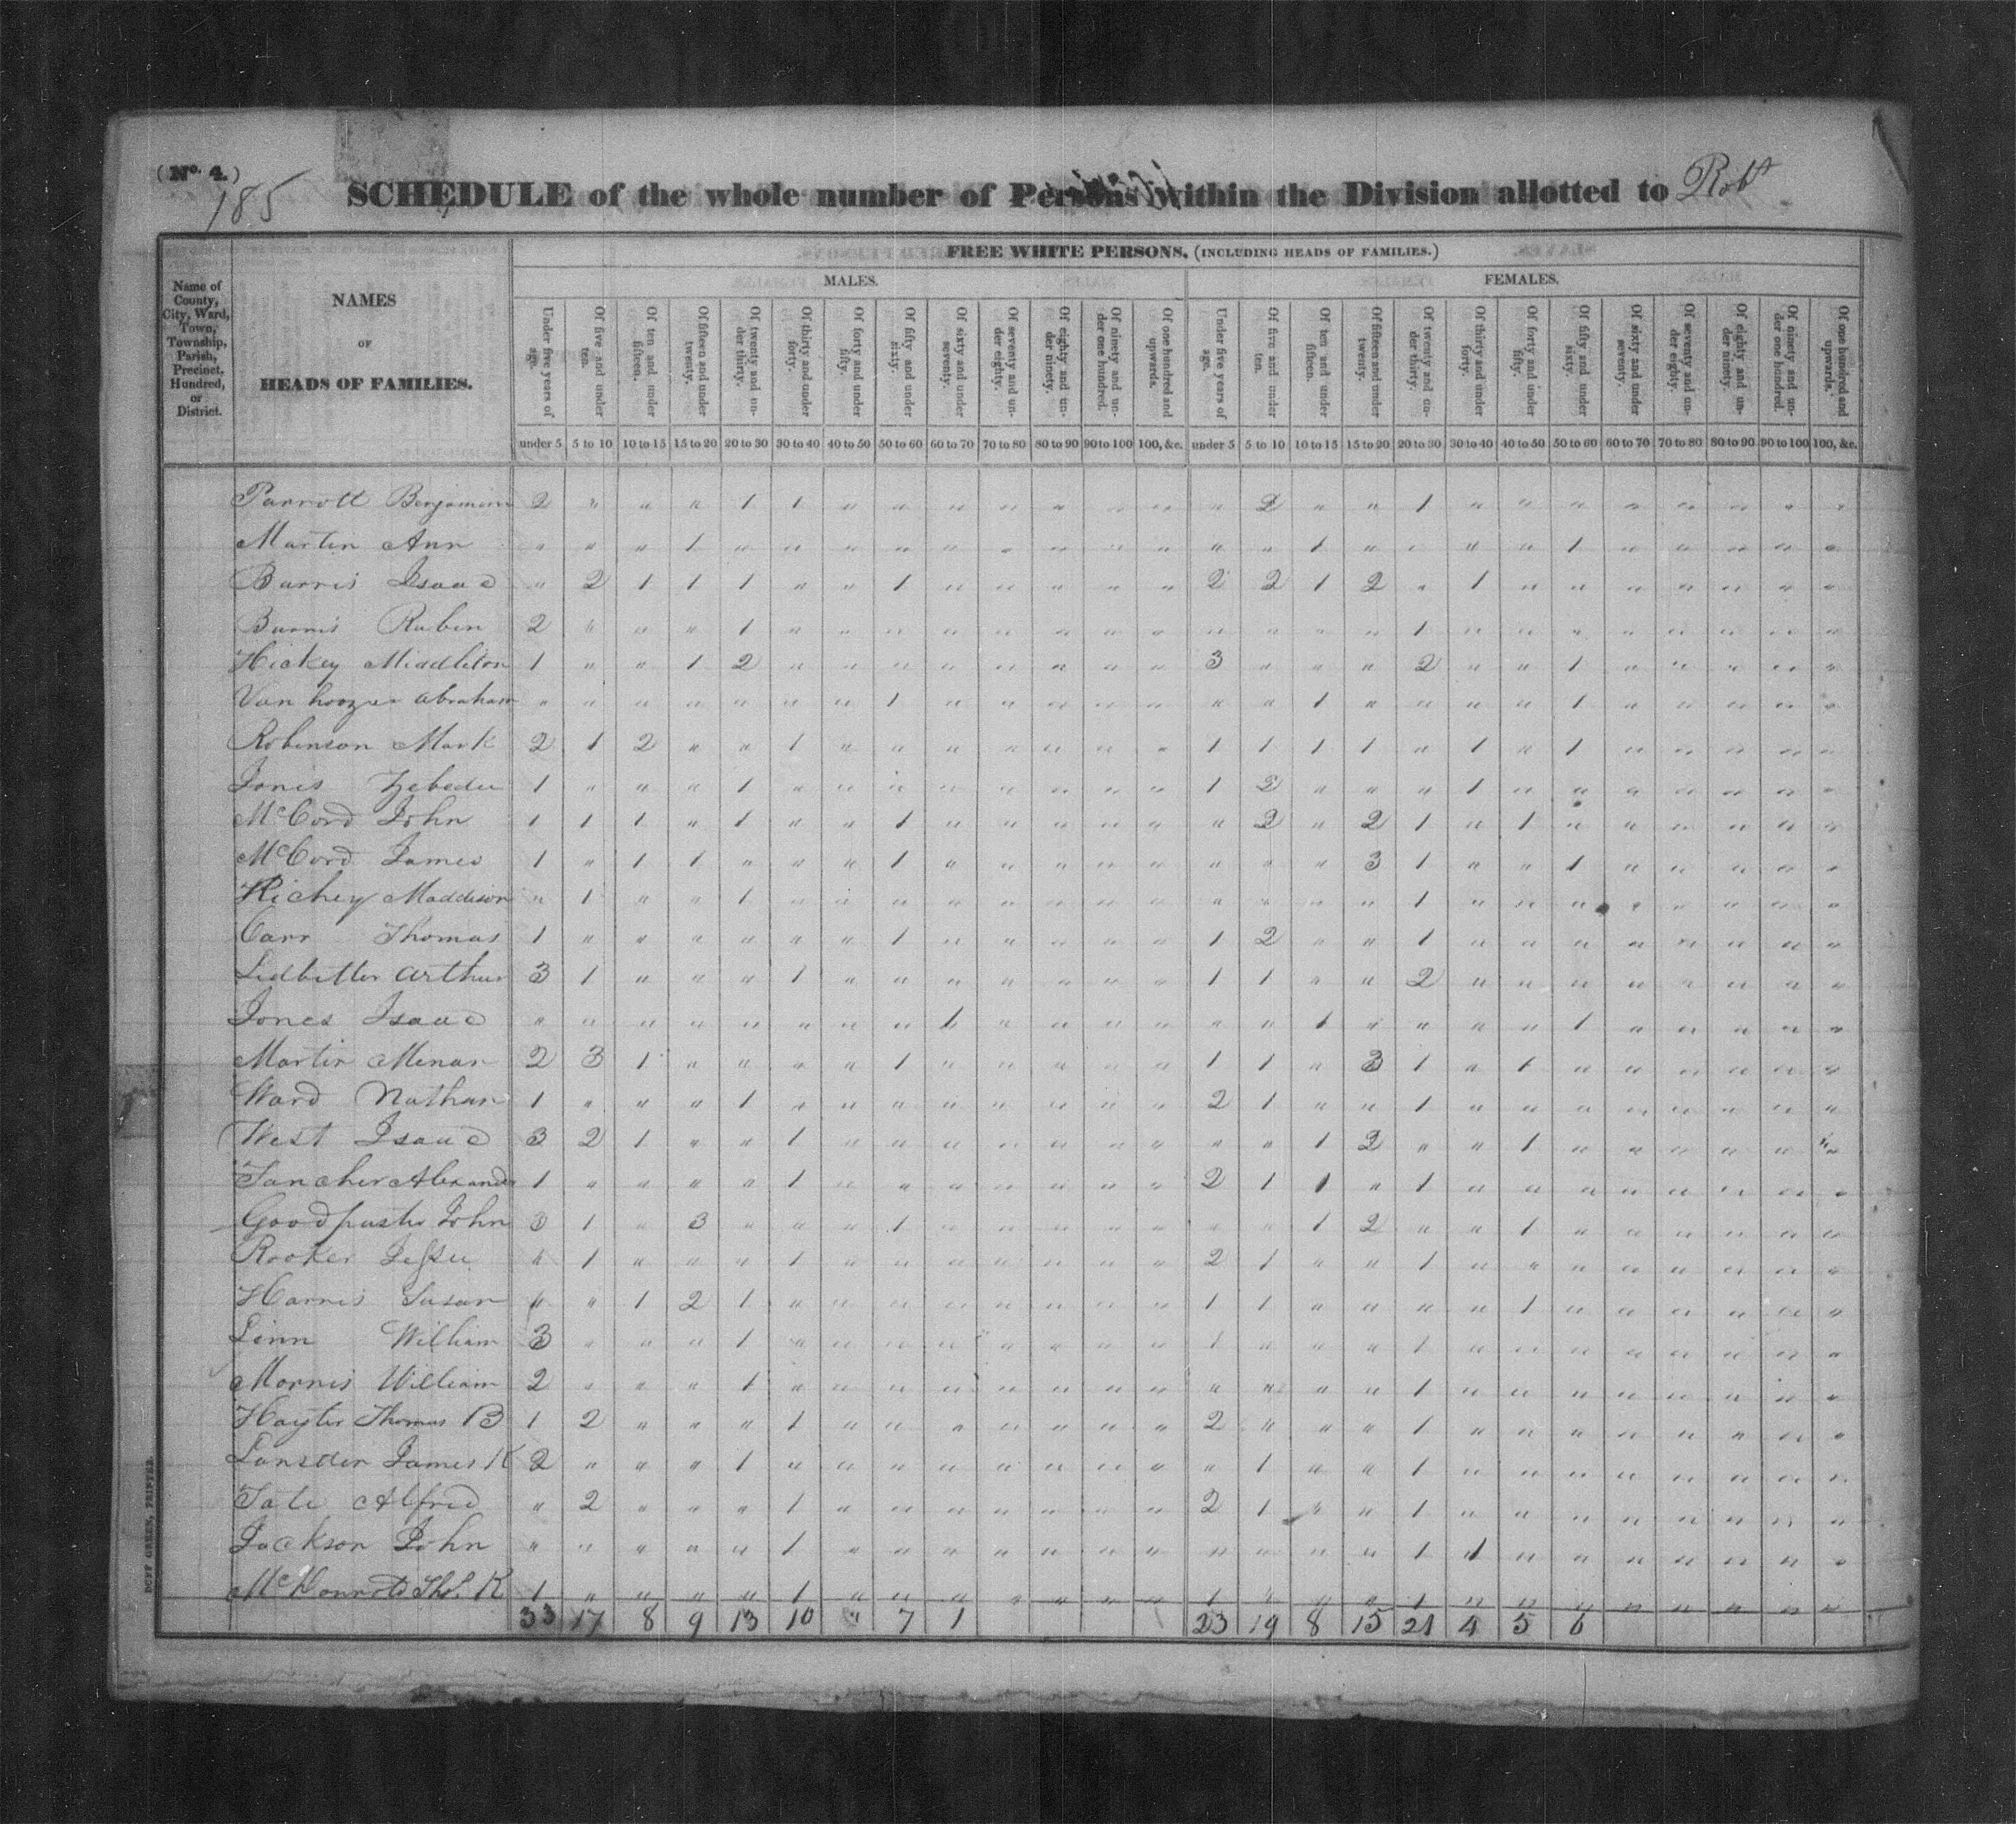 (No. 4.)
185
SCHEDULE of the whole number of Persons within the Division allotted to Robt
Name of County, City, Ward, Town, Township, Parish, Precinct, Hundred, or District.
NAMES
OF
HEADS OF FAMILIES.
FREE WHITE PERSONS, (INCLUDING HEADS OF FAMILIES.)
MALES. FEMALES.
Under five years of age. Of five and under ten. Of ten and under fifteen. Of fifteen and under twenty. Of twenty and under thirty. Of thirty and under forty. Of forty and under fifty. Of fifty and under sixty. Of sixty and under seventy. Of seventy and under eighty. Of eighty and under ninety. Of ninety and under one hundred. Of one hundred and upwards. Under five years of age. Of five and under ten. Of ten and under fifteen. Of fifteen and under twenty. Of twenty and under thirty. Of thirty and under forty. Of forty and under fifty. Of fifty and under sixty. Of sixty and under seventy. Of seventy and under eighty. Of eighty and under ninety. Of ninety and under one hundred. Of one hundred and upwards.
under 5 5 to 10 10 to 15 15 to 20 20 to 30 30 to 40 40 to 50 50 to 60 60 to 70 70 to 80 80 to 90 90 to 100 100, &c. under 5 5 to 10 10 to 15 15 to 20 20 to 30 30 to 40 40 to 50 50 to 60 60 to 70 70 to 80 80 to 90 90 to 100 100, &c.
Parrott Benjamin 2 " " " 1 1 " " " " " " " " 2 " " 1 " " " " " " " "
Martin Ann " " " 1 " " " " " " " " " " " 1 " " " " 1 " " " " "
Burris Isaac " 2 1 1 1 " " 1 " " " " " 2 2 1 2 " 1 " " " " " " "
Burris Rubin 2 " " " 1 " " " " " " " " " " " " 1 " " " " " " " "
Hickey Middleton 1 " " 1 2 " " " " " " " " 3 " " " 2 " " 1 " " " " "
Van hoozer Abraham " " " " " " " 1 " " " " " " " 1 " " " " 1 " " " " "
Robinson Mark 2 1 2 " " 1 " " " " " " " 1 1 1 1 " 1 " 1 " " " " "
Jones Zebedee 1 " " " 1 " " " " " " " " 1 2 " " " 1 " " " " " " "
McCord John 1 1 1 " 1 " " 1 " " " " " " 2 " 2 1 " 1 " " " " " "
McCord James 1 " 1 1 " " " 1 " " " " " " " " 3 1 " " 1 " " " " "
Richey Maddison " 1 " " 1 " " " " " " " " " " " " 1 " " " " " " " "
Carr Thomas 1 " " " " " " 1 " " " " " 1 2 " " 1 " " " " " " " "
Ledbetter Arthur 3 1 " " " 1 " " " " " " " 1 1 " " 2 " " " " " " " "
Jones Isaac " " " " " " " " 1 " " " " " " 1 " " " " 1 " " " " "
Martin Menan 2 3 1 " " " " 1 " " " " " 1 1 " 3 1 " 1 " " " " " "
Ward Nathan 1 " " " 1 " " " " " " " " 2 1 " " 1 " " " " " " " "
West Isaac 3 2 1 " " 1 " " " " " " " " " 1 2 " " 1 " " " " " "
Alexander 1 " " " " 1 " " " " " " " 2 1 1 " 1 " " " " " " " "
Goodpaster John 3 1 " 3 " " " 1 " " " " " " " 1 2 " " 1 " " " " " "
Rooker Jessee " 1 " " " 1 " " " " " " " 2 1 " " 1 " " " " " " " "
Harris Susan " " 1 2 1 " " " " " " " " 1 1 " " " " 1 " " " " " "
Linn William 3 " " " 1 " " " " " " " " 1 " " " 1 " " " " " " " "
Morris William 2 " " " 1 " " " " " " " " " " " " 1 " " " " " " " "
Hayter Thomas B 1 2 " " " 1 " " " " " " " 2 " " " 1 " " " " " " " "
Lansden James K 2 " " " 1 " " " " " " " " " 1 " " 1 " " " " " " " "
Tate Alfred " 2 " " " 1 " " " " " " " 2 1 " " 1 " " " " " " " "
Jackson John " " " " " 1 " " " " " " " " " " " 1 1 " " " " " " "
Thos. K 1 " " " " 1 " " " " " " " 1 " " " 1 " " " " " " " "
33 17 8 9 13 10 " 7 1 23 19 8 15 21 4 5 6
DUFF GREEN, PRINTER.